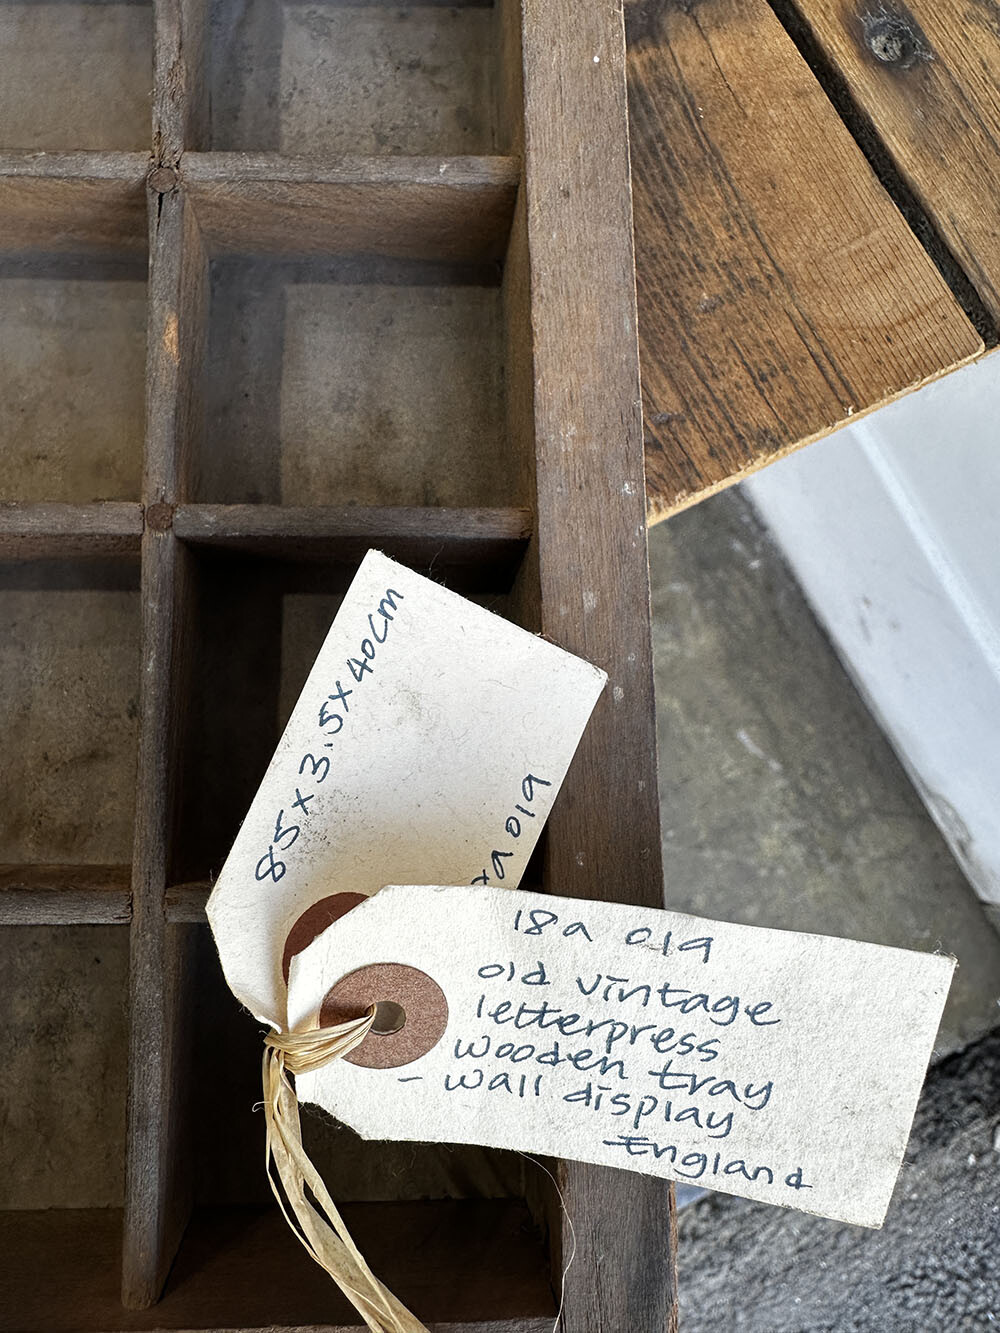 85x3.5x40cm
a 019
18a 019
old vintage
letterpress
wooden tray
- wall display
England